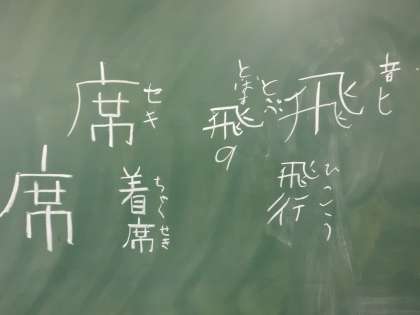 飛
音ヒ
とぶ
飛行
ひこう
とばす
飛の
席
セキ
着席
ちゃくせき
席